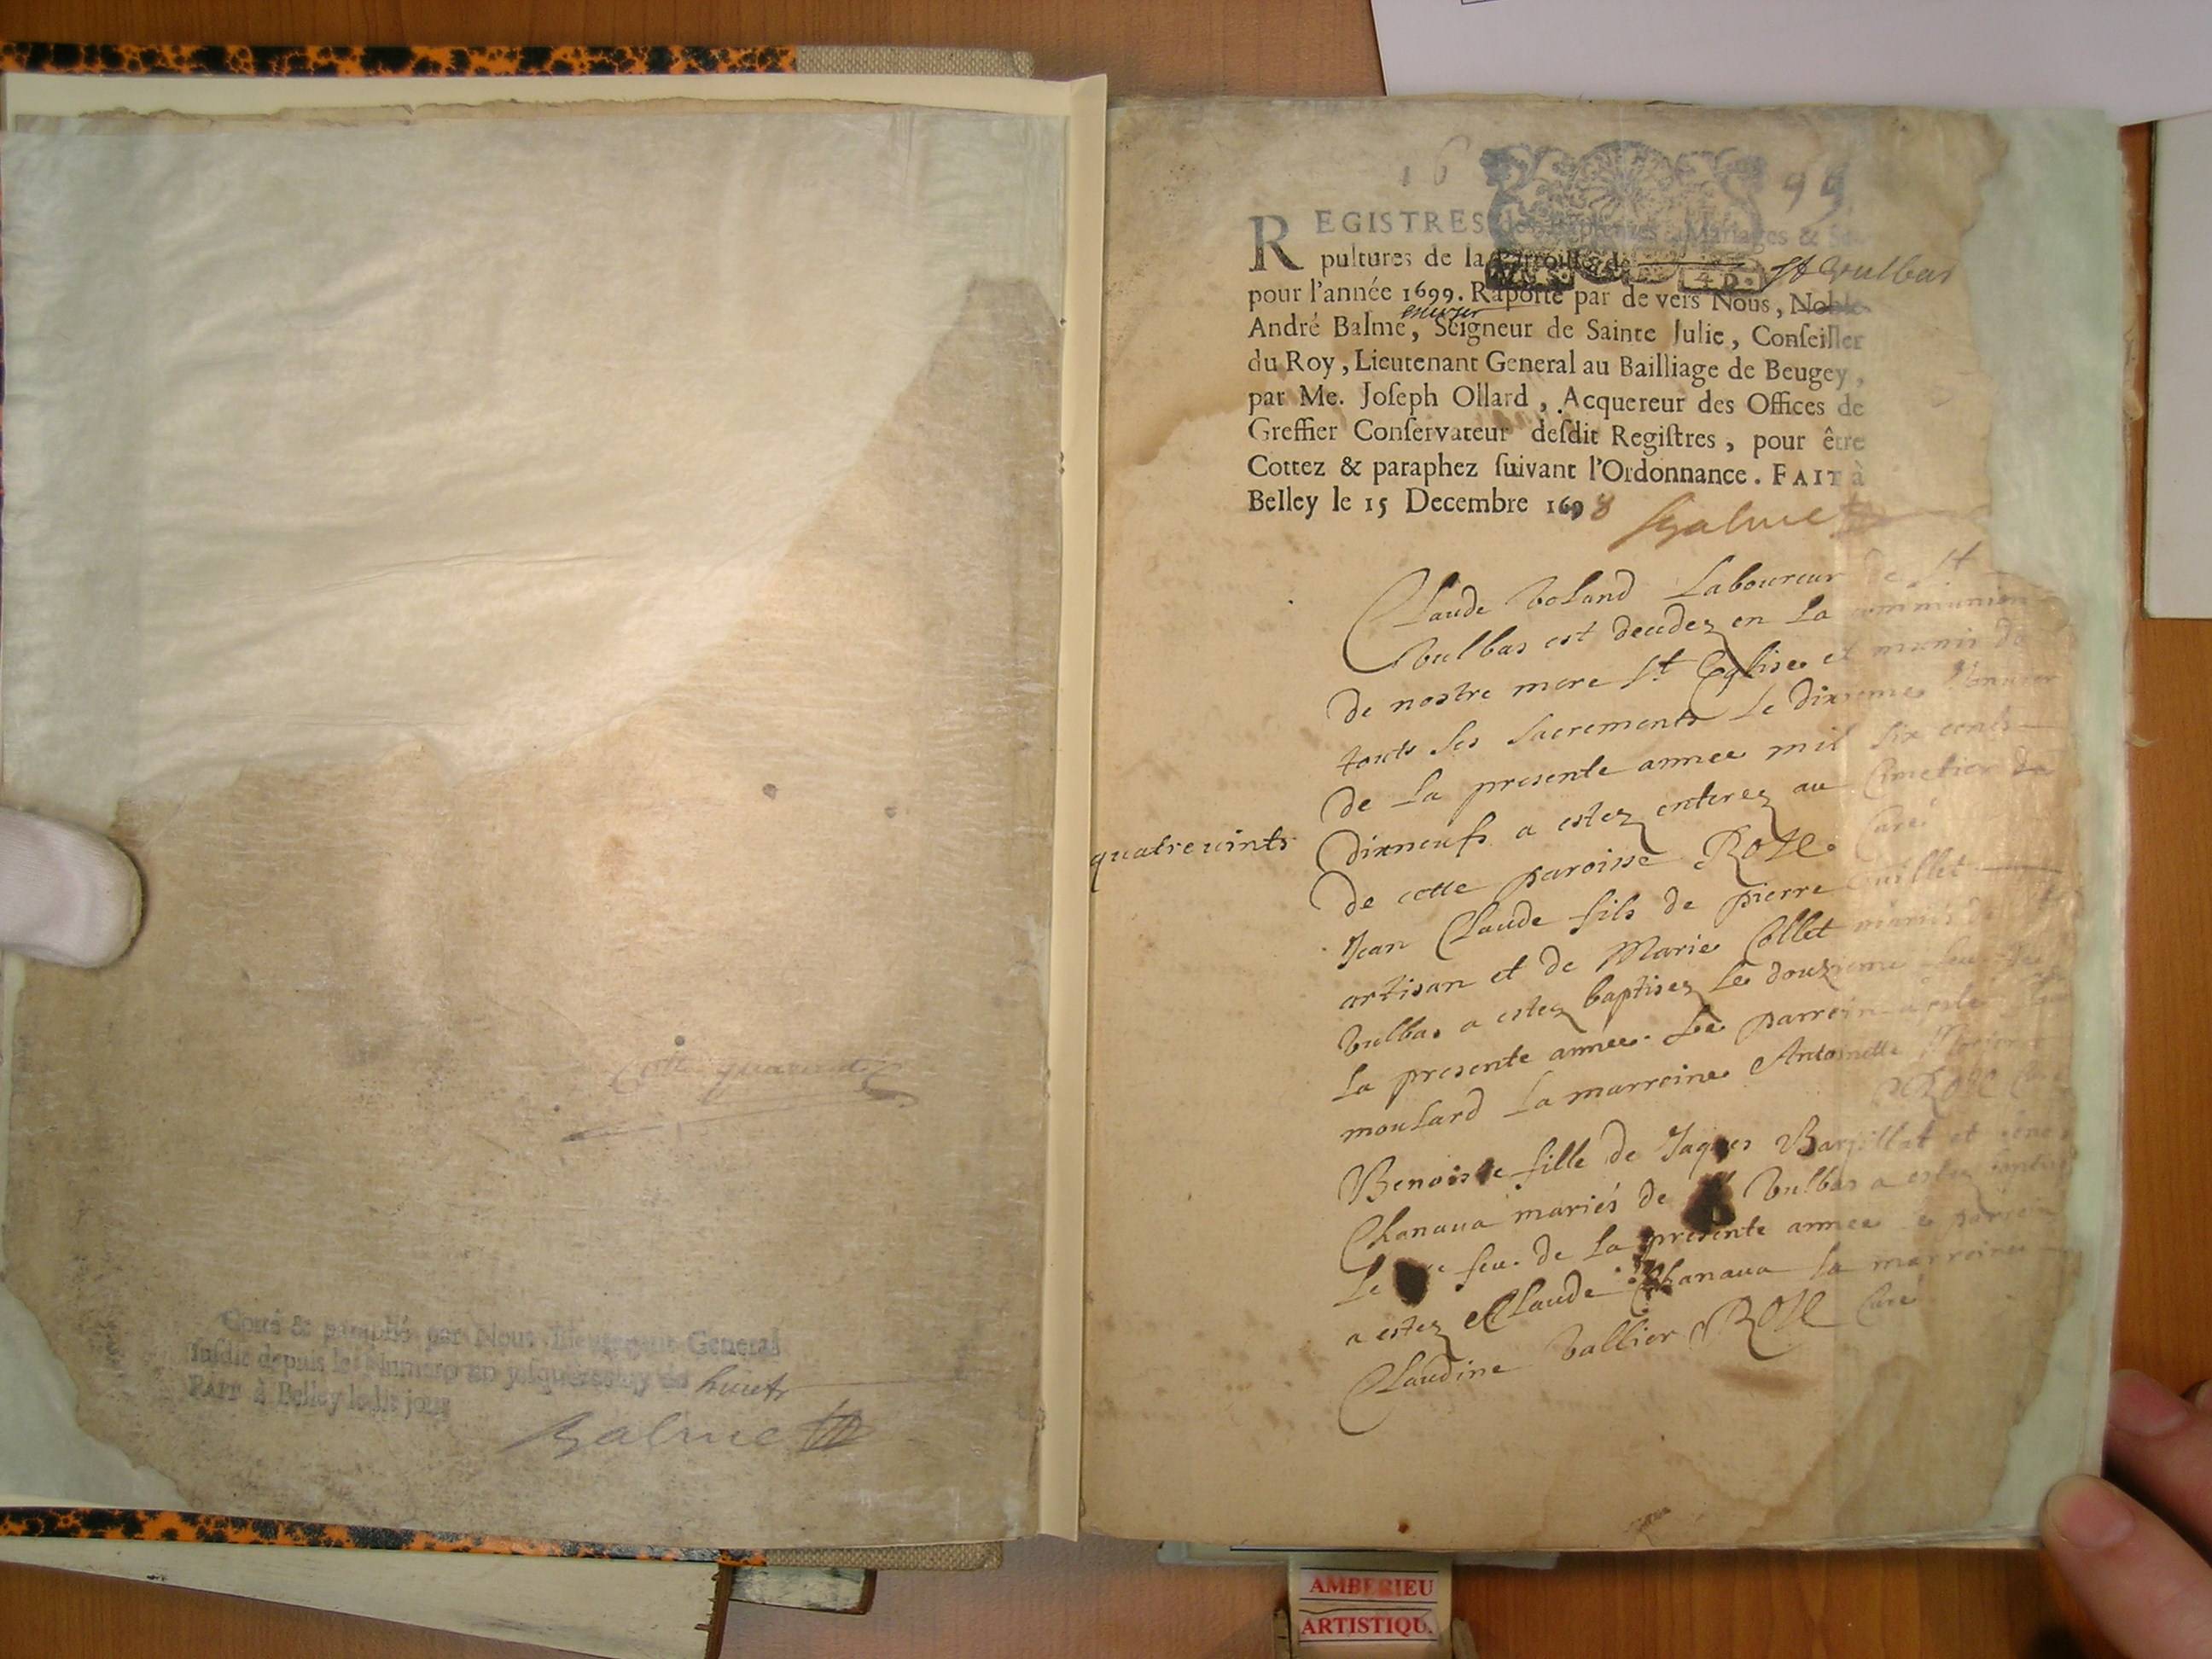 Cotté & paraphé par Nous Lieutenant General
susdit depuis le Numero un jusques huits
FAIT à Belley ledit jour
Balme
16 99
REGISTRES des Baptêmes, Mariages & Se-
pultures de la Parroisse de St Vulbas
pour l'année 1699. Raporté par de vers Nous, Noble
escuyer
André Balme, Seigneur de Sainte Julie, Conseiller
du Roy, Lieutenant General au Bailliage de Beugey,
par Me. Joseph Ollard, Acquereur des Offices de
Greffier Conservateur desdit Registres, pour être
Cottez & paraphez suivant l'Ordonnance. FAIT à
Belley le 15 Decembre 1698 Balme
Claude Boland Laboureur de St
Vulbas est decedez en La communion
de nostre mere St Eglise et munis de
touts ses sacrements Le dixieme Janvier
de La presente annee mil six cents
quatrevints
dixneufs a estez enterez au Cimetier de
de cette paroisse ROZE Curé
Jean Claude fils de pierre Cuillet
artisan et de Marie Collet mariés de St
Vulbas a estez baptisez Le douzieme feu. de
La presente annee. Le parrein a esté
moulard La marreine Antoinette
ROZE
Benoiste fille de Jaques et
Chanaua mariés de Vulbas a estez
Le feu. de La presente annee Le parrein
a estez Claude Chanaua La marreine
Claudine Vallier ROZE Curé
AMBERIEU
ARTISTIQU.